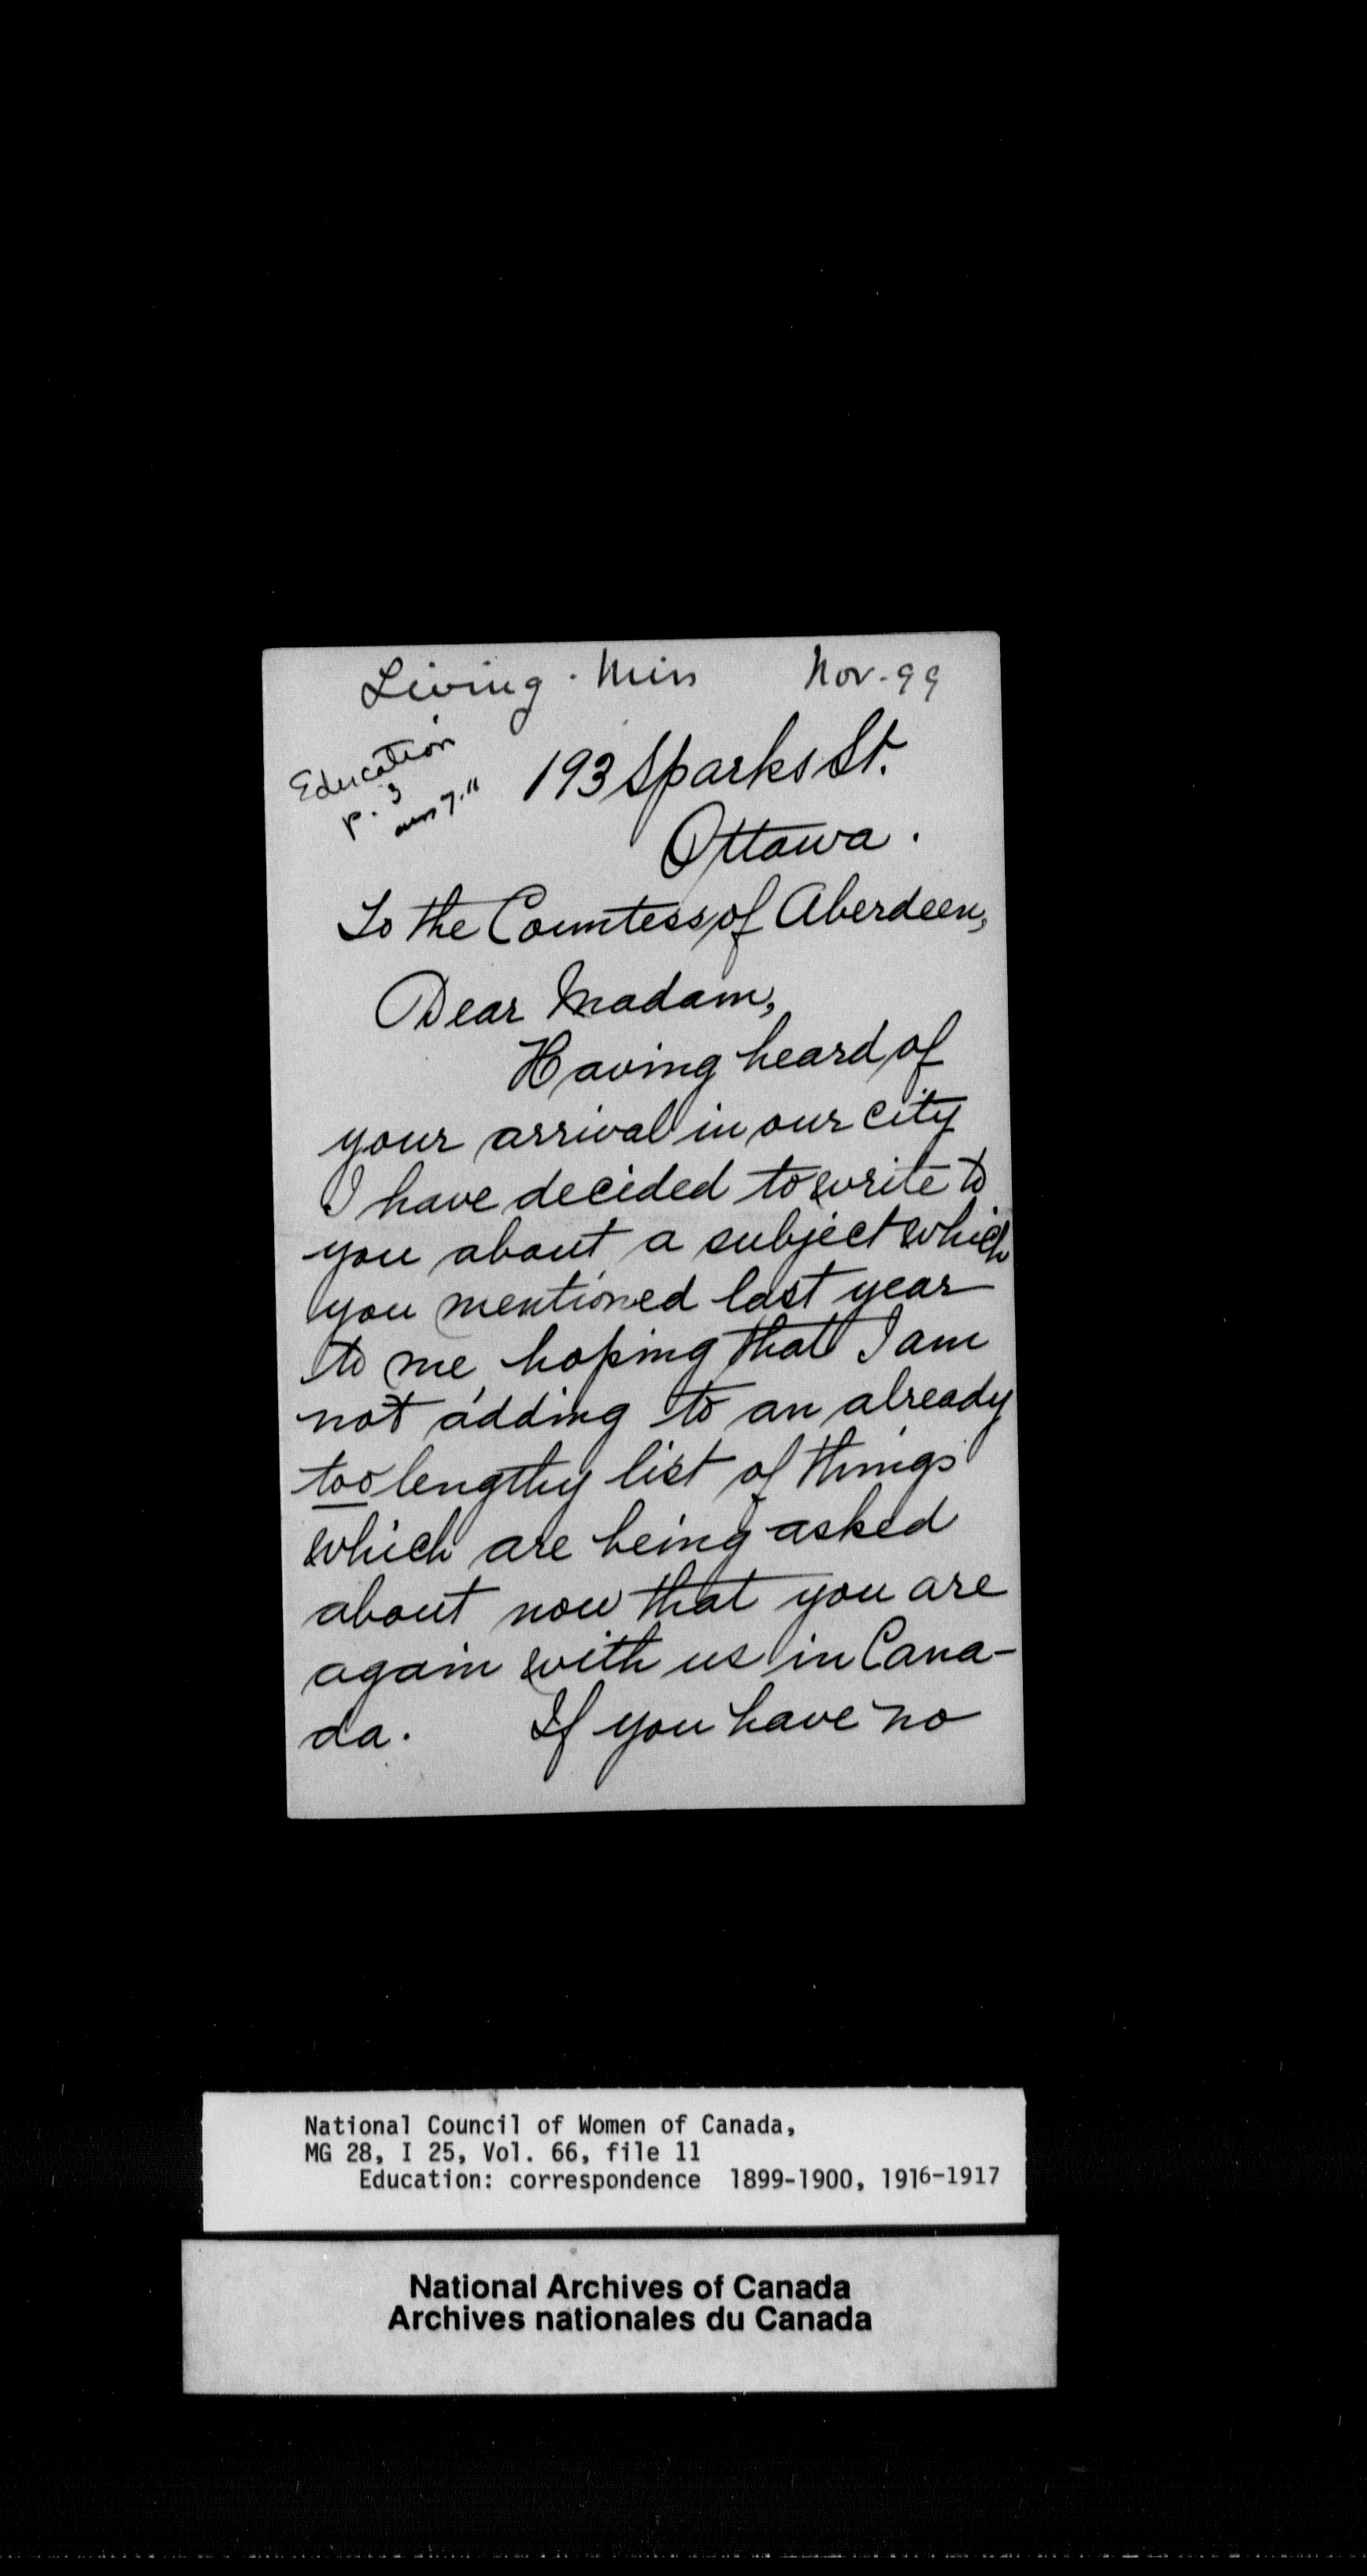 Living. Miss Nov. 99
Education
p. 3
193 Sparks St.
Ottawa.
To the Countess of Aberdeen,
Dear Madam,
Having heard of
your arrival in our city
I have decided to write to
you about a subject which
you mentioned last year
to me, hoping that I am
not adding to an already
too lengthy list of things
which are being asked
about now that you are
again with us in Cana-
da. If you have no
National Council of Women of Canada,
MG 28, I 25, Vol. 66, file 11
Education: correspondence 1899-1900, 1916-1917
National Archives of Canada
Archives nationales du Canada